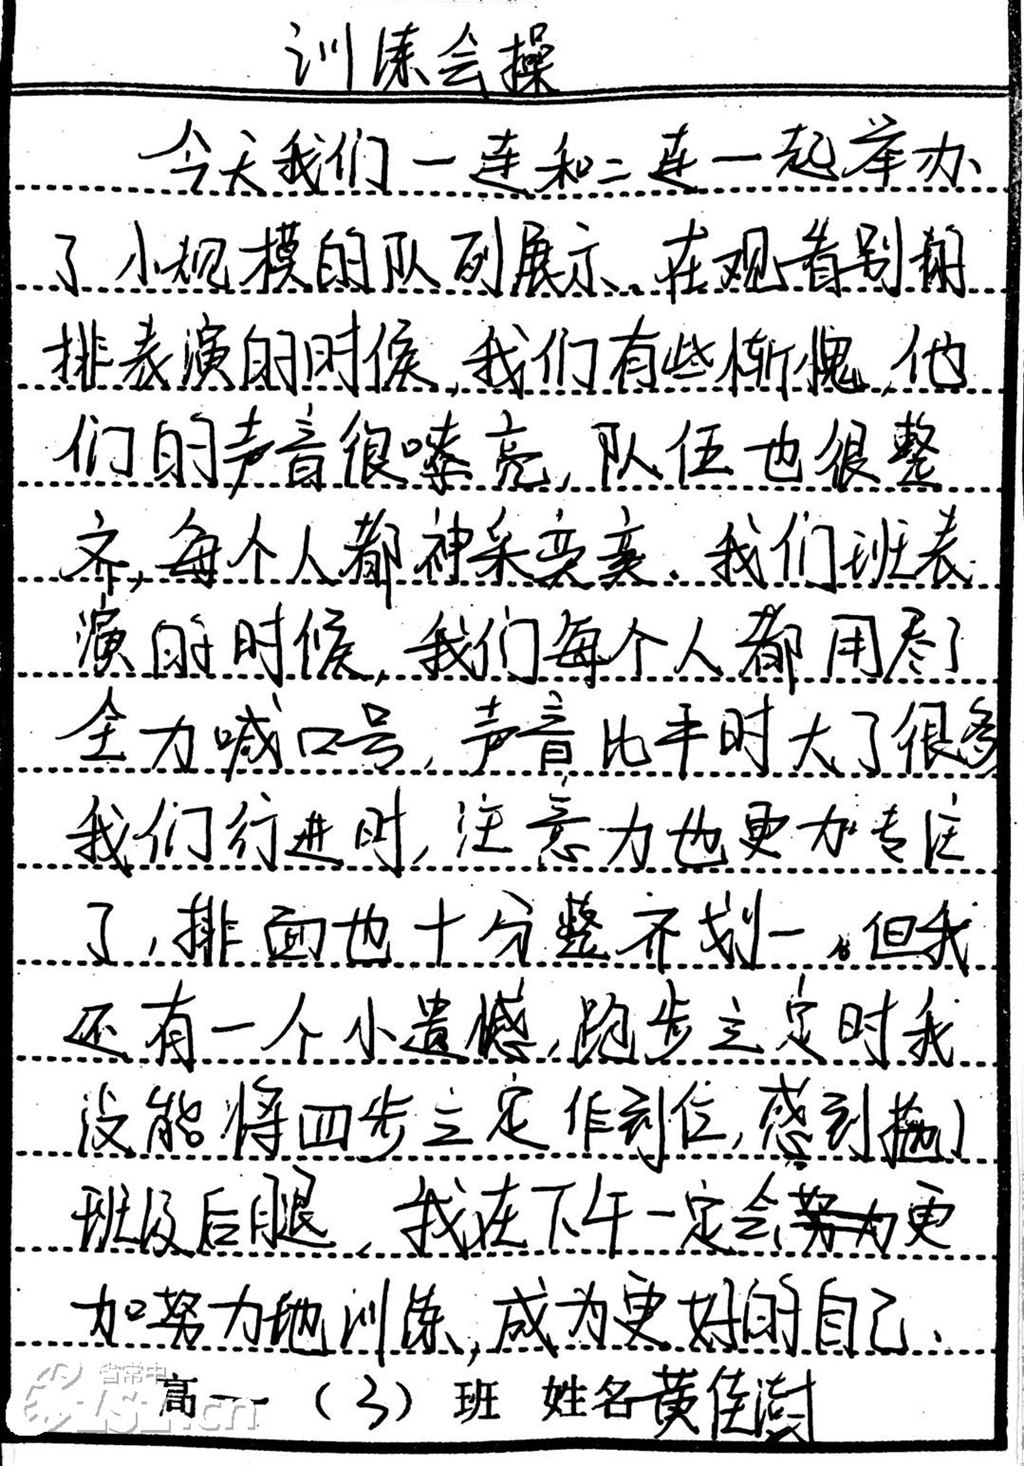 训练会操
今天我们一连和二连一起举办
了小规模的队列展示.在观看别的
排表演的时候,我们有些惭愧,他
们的声音很嗓亮,队伍也很整
齐,每个人都神采奕奕.我们班表
演的时候,我们每个人都用尽了
全力喊口号,声音比平时大了很多
我们行进时,注意力也更加专注
了,排面也十分整齐划一。但我
还有一个小遗憾,跑步立定时我
没能将四步立定作到位,感到拖了
班级后腿,我在下午一定会更
加努力地训练,成为更好的自己.
高一(3)班 姓名黄佳澍
省常中